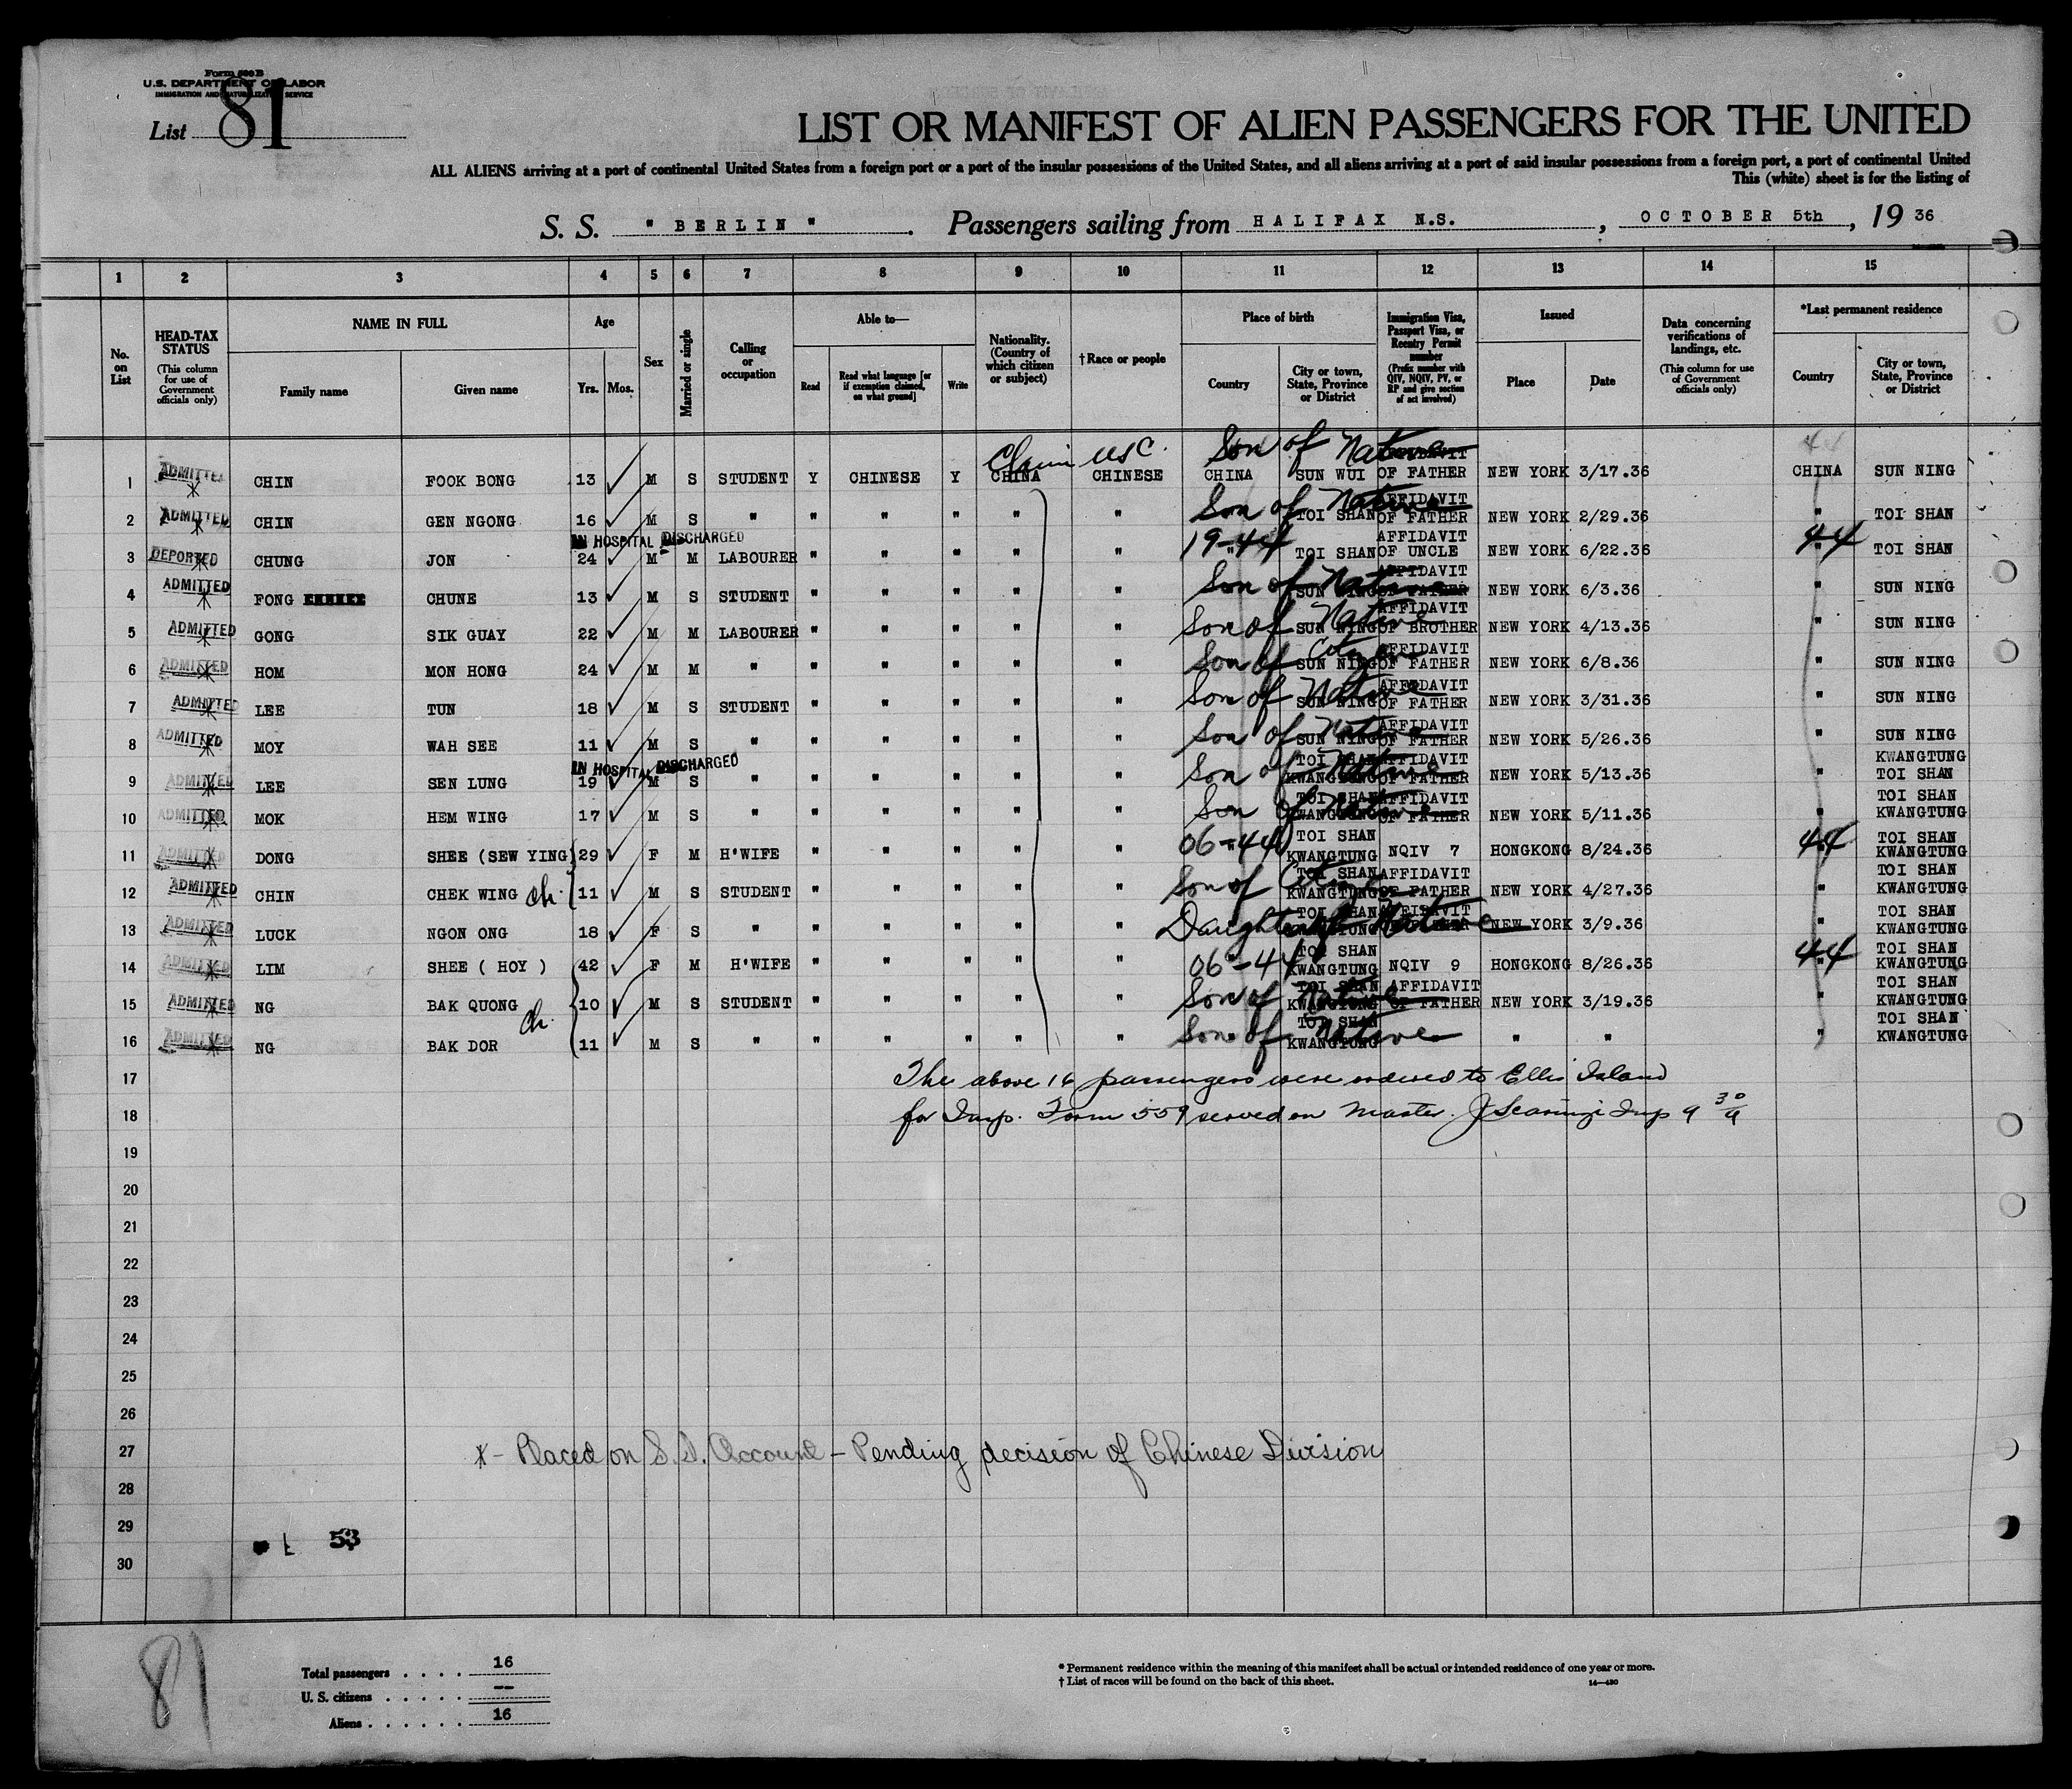 Form 500 B
U.S. DEPARTMENT OF LABOR
IMMIGRATION AND NATURALIZATION SERVICE
List 81
LIST OR MANIFEST OF ALIEN PASSENGERS FOR THE UNITED
ALL ALIENS arriving at a port of continental United States from a foreign port or a port of the insular possessions of the United States, and all aliens arriving at a port of said insular possessions from a foreign port, a port of continental United
This (white) sheet is for the listing of
S. S. " BERLIN " . Passengers sailing from HALIFAX N.S. , OCTOBER 5th , 19 36
1 2 3 4 5 6 7 8 9 10 11 12 13 14 15
No. on List
HEAD-TAX STATUS (This column for use of Government officials only)
NAME IN FULL Family name Given name
Age Yrs. Mos.
Sex
Married or single
Calling or occupation
Able to— Read Read what language [or if exemption claimed, on what ground] Write
Nationality. (Country of which citizen or subject)
†Race or people
Place of birth Country City or town, State, Province or District
Immigration Visa, Passport Visa, or Reentry Permit number (Prefix number with QIV, NQIV, PV, or RP and give section of act involved)
Issued Place Date
Data concerning verifications of landings, etc. (This column for use of Government officials only)
*Last permanent residence Country City or town, State, Province or District
Claim USC. Son of Native 44
1 ADMITTED CHIN FOOK BONG 13 M S STUDENT Y CHINESE Y CHINA CHINESE CHINA SUN WUI OF FATHER NEW YORK 3/17.36 CHINA SUN NING
2 ADMITTED CHIN GEN NGONG 16 M S " " " " " " Son of Native TOI SHAN AFFIDAVIT OF FATHER NEW YORK 2/29.36 " TOI SHAN
IN HOSPITAL DISCHARGED
3 DEPORTED CHUNG JON 24 M M LABOURER " " " " " 19-44 " TOI SHAN AFFIDAVIT OF UNCLE NEW YORK 6/22.36 44 " TOI SHAN
4 ADMITTED FONG CHUNE 13 M S STUDENT " " " " " Son of Native SUN NING AFFIDAVIT OF FATHER NEW YORK 6/3.36 " SUN NING
5 ADMITTED GONG SIK GUAY 22 M M LABOURER " " " " " Son of Native SUN NING AFFIDAVIT OF BROTHER NEW YORK 4/13.36 " SUN NING
6 ADMITTED HOM MON HONG 24 M M " " " " " " Son of Citizen SUN NING AFFIDAVIT OF FATHER NEW YORK 6/8.36 " SUN NING
7 ADMITTED LEE TUN 18 M S STUDENT " " " " " Son of Native SUN NING AFFIDAVIT OF FATHER NEW YORK 3/31.36 " SUN NING
8 ADMITTED MOY WAH SEE 11 M S " " " " " " Son of Native SUN NING AFFIDAVIT OF FATHER NEW YORK 5/26.36 " SUN NING
IN HOSPITAL DISCHARGED
9 ADMITTED LEE SEN LUNG 19 M S " " " " " " Son of Native TOI SHAN KWANGTUNG AFFIDAVIT OF FATHER NEW YORK 5/13.36 " KWANGTUNG TOI SHAN
10 ADMITTED MOK HEM WING 17 M S " " " " " " Son of Native TOI SHAN KWANGTUNG AFFIDAVIT OF FATHER NEW YORK 5/11.36 " TOI SHAN KWANGTUNG
11 ADMITTED DONG SHEE (SEW YING) 29 F M H'WIFE " " " " " 06-44 TOI SHAN KWANGTUNG NQIV 7 HONGKONG 8/24.36 44 " TOI SHAN KWANGTUNG
12 ADMITTED CHIN CHEK WING ch. 11 M S STUDENT " " " " " Son of Citizen TOI SHAN KWANGTUNG AFFIDAVIT OF FATHER NEW YORK 4/27.36 " TOI SHAN KWANGTUNG
13 ADMITTED LUCK NGON ONG 18 F S " " " " " " Daughter of Native TOI SHAN KWANGTUNG AFFIDAVIT NEW YORK 3/9.36 " TOI SHAN KWANGTUNG
14 ADMITTED LIM SHEE ( HOY ) 42 F M H'WIFE " " " " " 06-44 TOI SHAN KWANGTUNG NQIV 9 HONGKONG 8/26.36 44 " TOI SHAN KWANGTUNG
15 ADMITTED NG BAK QUONG ch. 10 M S STUDENT " " " " " Son of Native TOI SHAN KWANGTUNG AFFIDAVIT OF FATHER NEW YORK 3/19.36 " TOI SHAN KWANGTUNG
16 ADMITTED NG BAK DOR 11 M S " " " " " " Son of Native TOI SHAN KWANGTUNG " " " TOI SHAN KWANGTUNG
17 The above 16 passengers were ordered to Ellis Island
18 for Insp. Form 559 served on Master. Insp 9 30/9
19
20
21
22
23
24
25
26
27 x - Placed on S.I. Account - Pending decision of Chinese Division
28
29 53
30
81
Total passengers . . . . 16
U. S. citizens . . . . . --
Aliens . . . . . . 16
* Permanent residence within the meaning of this manifest shall be actual or intended residence of one year or more.
† List of races will be found on the back of this sheet.
14—430